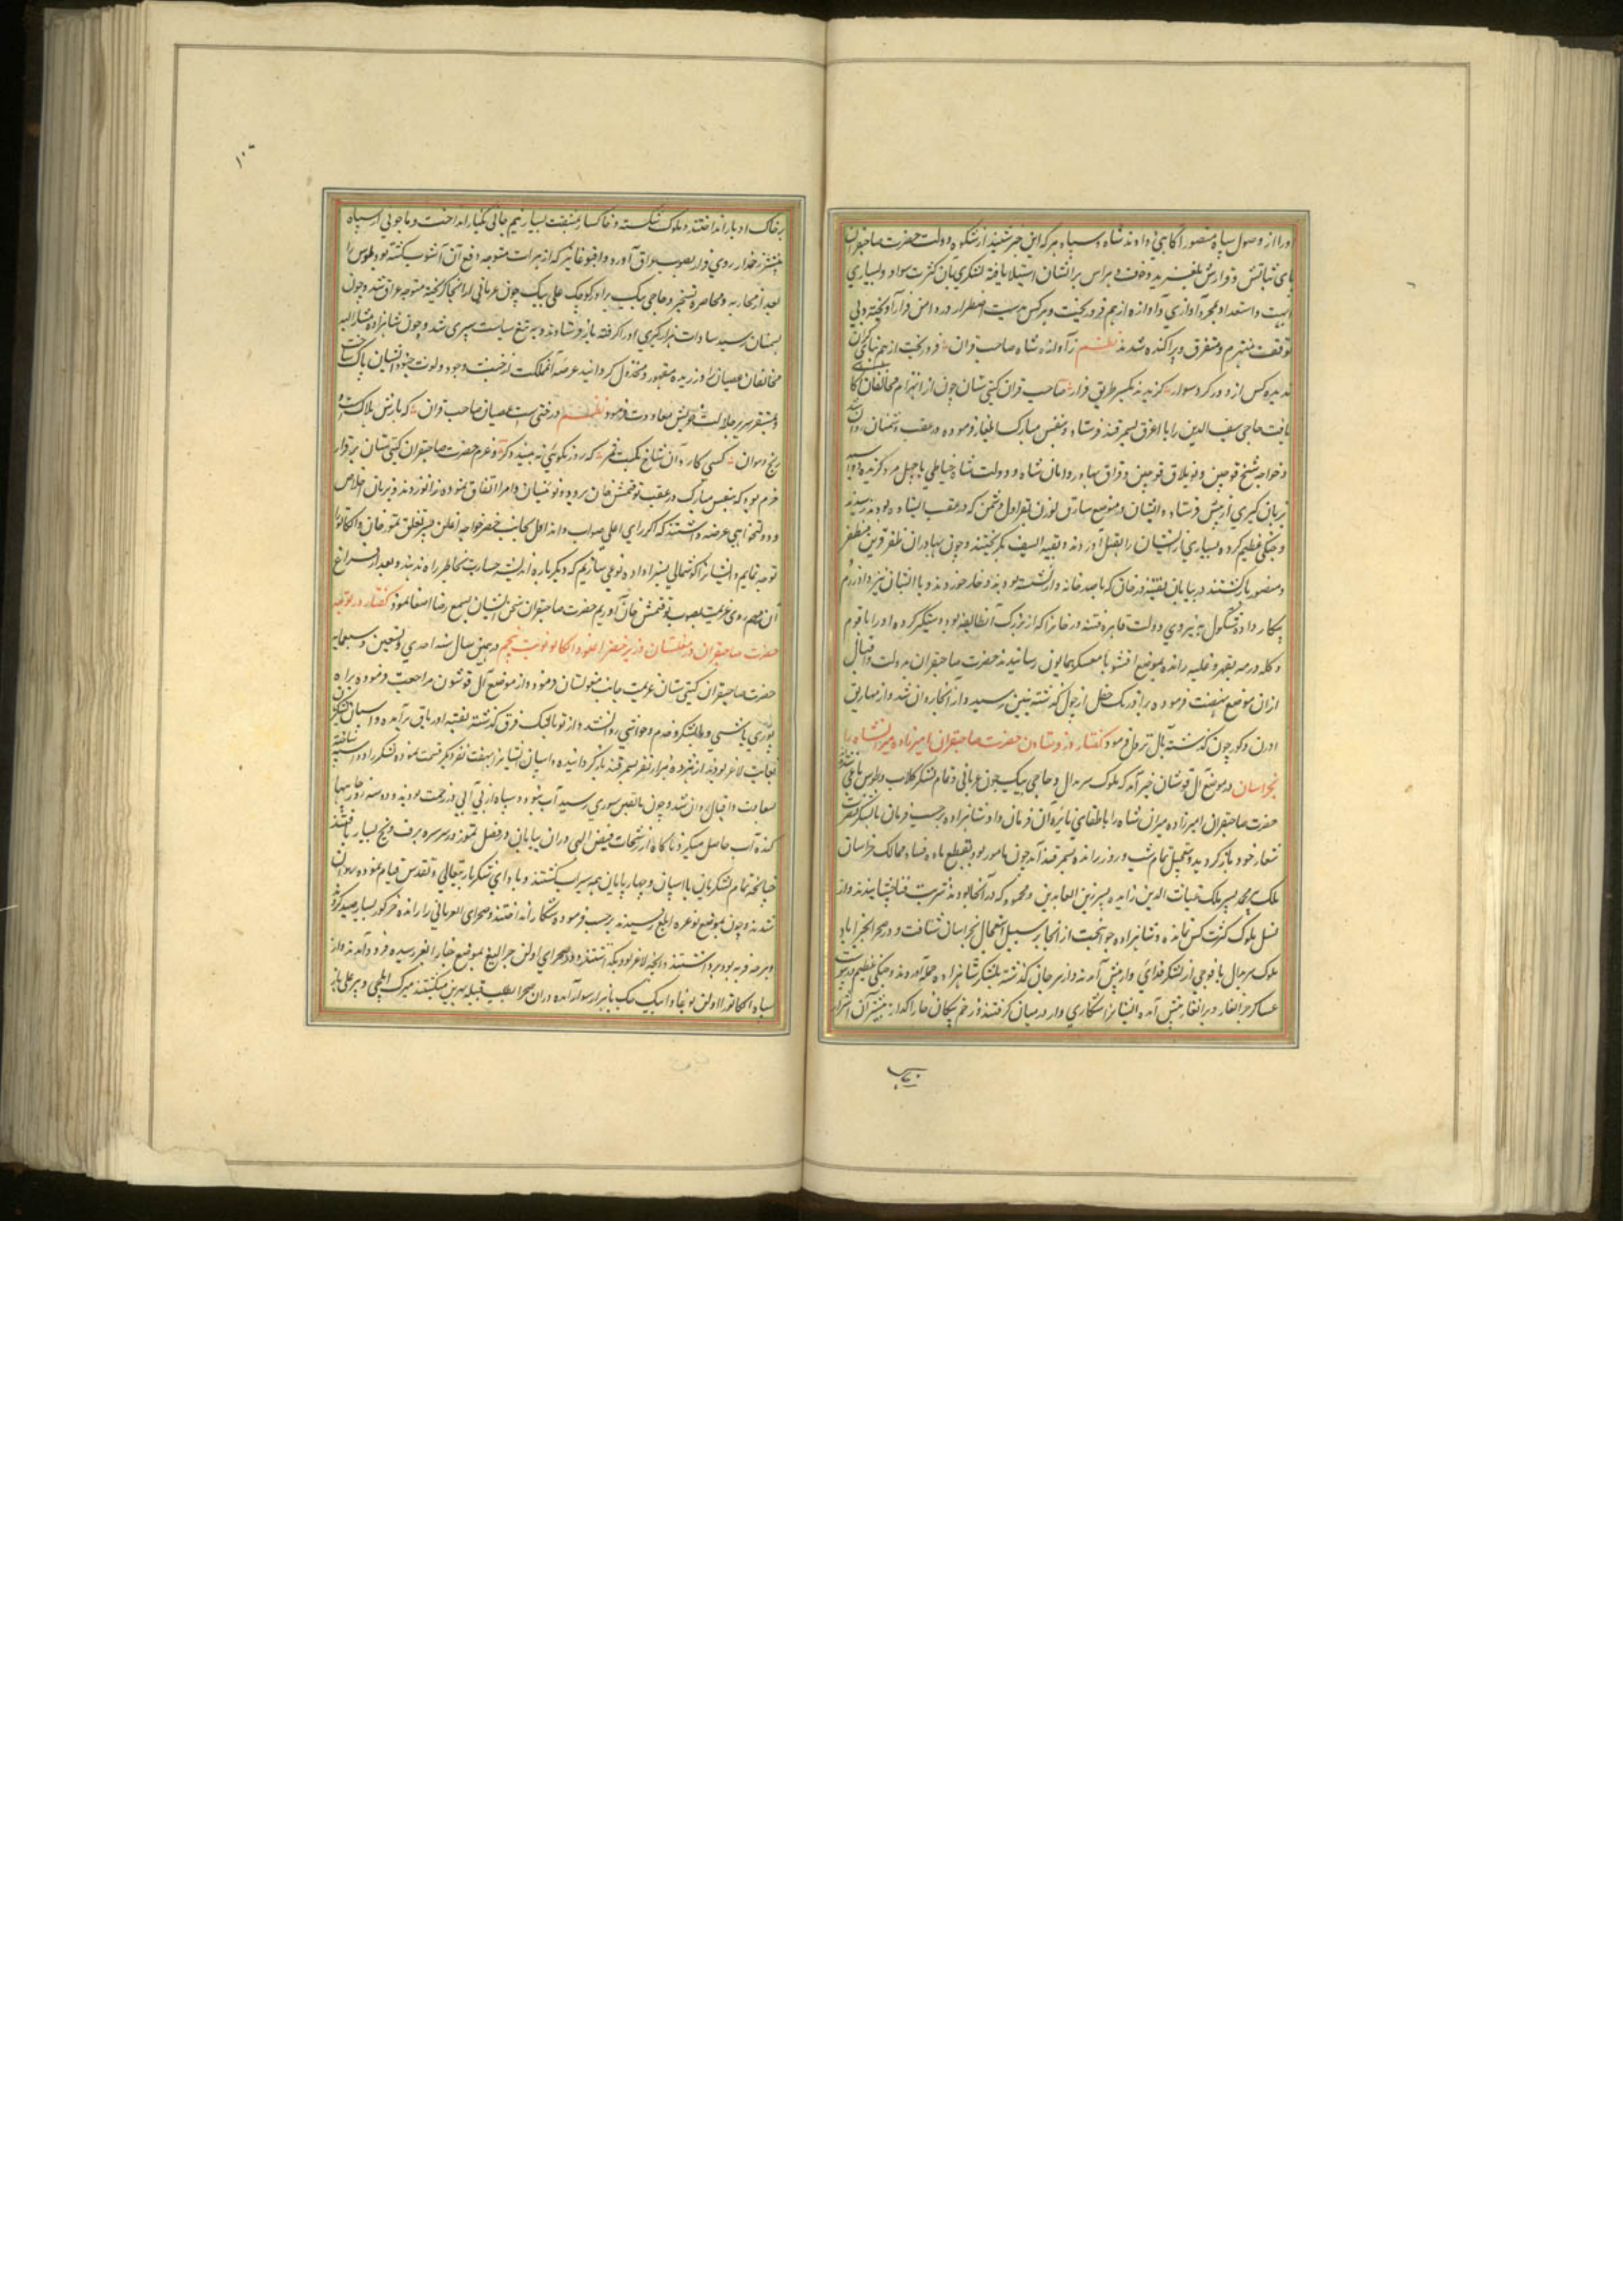 اورا از وصول سپاه منصور آگاهی دادند شاه و سپاه هر که این خبر شنید از شکوه دولت حضرت صاحبقران
پای ثباتش و قرارش بلغزید و خوف و هراس برایشان استیلا یافته لشکری بآن کثرت سواد و بسیاری
اهبت و استعداد بمجرد آوازی و آوازه از هم فرو ریخت و هر کس بدست اضطرار در دامن فرار آویخته و بی
توقف منهزم و متفرق و پراکنده شدند نظم ز آوازه شاه صاحب قران فرو ریخت از هم سپاهی گران
ندیده کس از دور گرد سوار گزیدند یکسر طریق فرار صاحب قران گیتی ستان چون از انهزام مخالفان آگاهی
یافت حاجی سیف الدین را با اغرق بسمرقند فرستاد و بنفس مبارک ایلغار فرموده در عقب دشمنان روان شد
و خواجه شیخ قوجین و توبلاق قوجین و قراق بهادر و امان شاه و دولت شاه جیباجی با چهل مرد گزیده
بزبان گیری از پیش فرستاد و ایشان در موضع سارق اوزن بقراول دشمن که در عقب ایستاده بودند رسیدند
و جنگی عظیم کرده بسیاری از ایشان را بقتل آوردند و بقیه السیف بگریختند و چون بهادران ظفر قرین مظفر
و منصور بازگشتند در بیابان بقیتمور خان که با صد خانه وار نشسته بودند دوچار خوردند و با ایشان نیز داد رزم
پیکار داده به نیروی دولت قاهره که از بزرگ آن طایفه بود دستگیر کرده او را با قوم
و گله و رمه بقهر و غلبه رانده بموضع اقسوما بمعسکر همایون رسانیدند حضرت صاحبقران بدولت و اقبال
ازان موضع نهضت فرموده براه اورنک چقل از چول گذشته رسید و از آنجا روان شد و از
اورن دکور چون گذشته بآل قوشون نزول فرمود گفتار در فرستادن حضرت صاحبقران امیرزاده میرانشاه را
بخراسان در موضع آل قوشون خبر آمد که ملوک سربدال و حاجی بیک جون غربانی و تمام لشکر کلات و طوس یاغی شدند
حضرت صاحبقران امیرزاده میران شاه را باطفای نایره آن فرمان داد شاهزاده برحسب فرمان با لشکر نصرت
شعار خود بازگردید و بتعجیل تمام شب و روز رانده بسمرقند آمد چون مامور بود بقطع ماده فساد ممالک خراسان
ملک پیر محمد پسر ملک غیاث الدین را با پسر زین العابدین و محمود که در آنجا بودند شربت فنا چشانیدند و از
نسل ملوک کرت کس نماند و شاهزاده جوانبخت از آنجا بر سبیل استعجال بخراسان شتافت و در بحرآباد
ملوک سربدال با فوجی از لشکر فدائی وار پیش آمدند و از سر جان گذشته بلشکر شاهزاده حمله آوردند و جنگی عظیم در پیوست
عساکر جرانغار و برانغار پیش آمده ایشانرا شکاری وار در میان گرفتند و زخم پیکان خارا گذار بیشتر آن اشرار
بر خاک
۱۰۶
بر خاک ادبار انداختند و ملوک شکسته و خاکسار بمشقت بسیار نیم جانی بکنار انداخت و ماجونی از سپاه
منتشر خود از روی فرار بصوب عراق آورد و اقبوغا نیز که از هرات متوجه دفع آن آشوب گشته بود طوس را
بعد از محاربه و محاصره تسخیر و حاجی بیک برادر کوچک علی بیک جون غربانی از آنجا گریخته متوجه عراق شد و چون
بسمنان رسید سادات هزارکیری او را گرفته باز فرستادند و به تیغ سیاست سپری شد و چون شاهزاده مشار الیه
مخالفان عصیان ورزیده مقهور و مخذول گردانید عرصه آن مملکت از خبث وجود و لوث جنود ایشان پاک ساخت
و بمستقر سریر جلالت خویش معاودت فرمود نظم درختی است عصیان صاحب قران که بارش هلاکت است
رنج و هوان کسی کارد آن شاخ نکبت ثمر که روز نکوئی نبیند دگر و عزم حضرت صاحبقران گیتی ستان بر قرار
جزم بود که بنفس مبارک در عقب توقتمش خان برود و نوئینان و امرا اتفاق نموده زانو زدند و بزبان اخلاص
و دولتخواهی عرضه داشتند که اگر رای اعلی صواب داند اول بجانب خضر خواجه اغلن پسر تغلق تمور خان و انکاتورا
توجه نمایم و ایشانرا گوشمالی بسزا داده نوعی سازیم که دیگر باره اندیشه جسارت بخاطر راه ندهند و بعد از فراغ
آن مهم روی عزیمت بصوب توقتمش خان آوریم حضرت صاحبقران سخن ایشان بسمع رضا اصغا نمود گفتار در توجه
حضرت صاحبقران بمغلستان و زیر خضر اغلن و انکا تورا نوبت پنجم در همین سال سنه احدی و تسعین و سبعمایه
حضرت صاحبقران گیتی ستان عزیمت جانب مغولستان فرمود و از موضع آل قوشون مراجعت فرموده براه
بوری باشی و با لشکر و خدم و حواشی روانشده از توبالیک قرق گذشته بعقبه اورناق برآمد و اسپان لشکر
بغایت لاغر بودند از هر ده هزار نفر بسمرقند بازگردانیده و اسپان ایشانرا بهفت نفر دیگر قسمت نموده لشکر را دو اسپه ساخته
بسعادت و اقبال روان شد و چون بالقص سوری رسید آب نبود و سپاه از بی آبی در زحمت بودند و دو سه روز چاهها
کنده آب حاصل میکردند ناگاه از رشحات فیض الهی دران بیابان در فصل تموز در سر سبزه برف و یخ بسیار یافتند
چنانچه تمام لشکریان با اسپان و چهارپایان همه سیراب گشتند و بادای شکر باری تعالی و تقدس قیام نموده روان
شدند و چون بموضع توغره اتلغ رسیدند بر حسب فرموده شکار انداختند و صحرای را رانده خر گور بسیار صید کردند
و هر چه فربه بود برداشتند و آنچه لاغر بود بگذاشتند و در صحرای اولن جرالیغ بموضع جبار انغر رسیده فرود آمدند و از
سپاه انکاتورا اولن بوغا و اینک جک با هزار سوار آمده دران صحرا بطلب قبیله بهرین میگشتند میرک ایلچی و پیر علی تاز